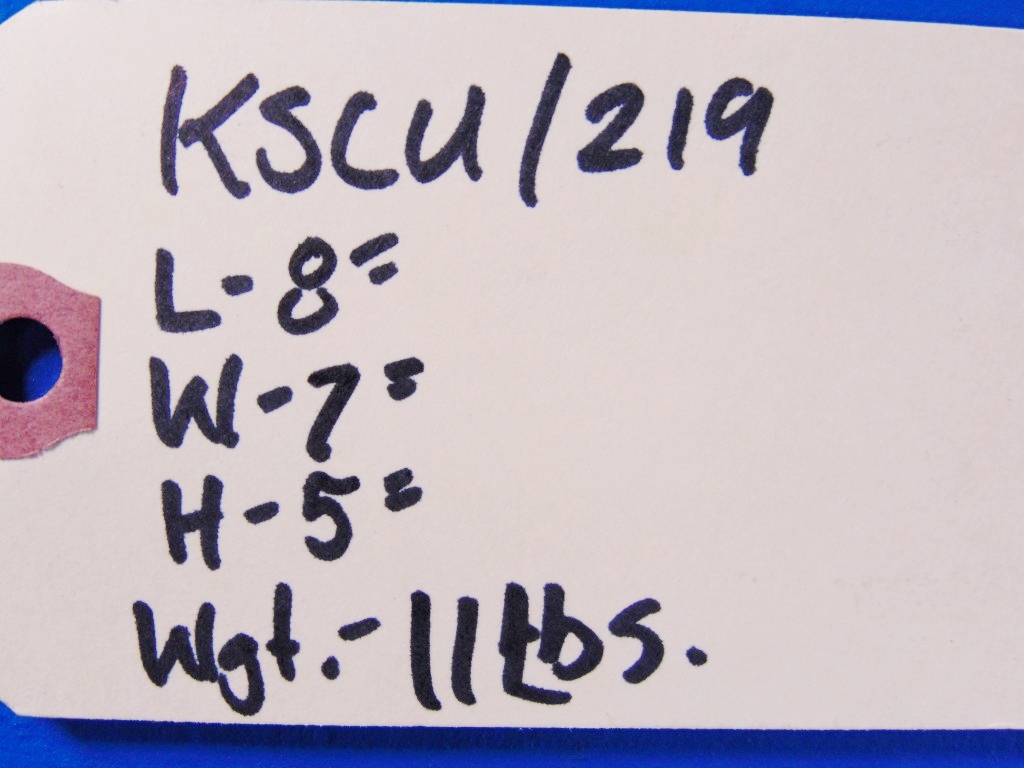 KSCU/219
L-8"
W-7"
H-5"
Wgt.-11Lbs.